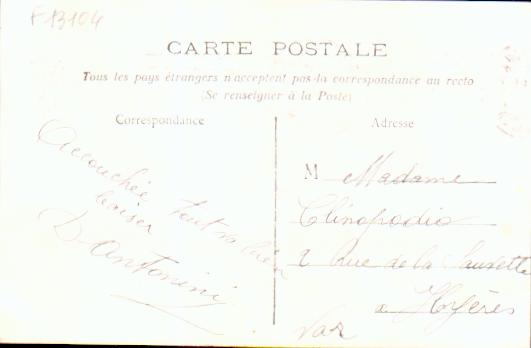 F13104
CARTE POSTALE
Tous les pays étrangers n'acceptent pas la correspondance au recto
(Se renseigner à la Poste)
Correspondance
Accouchée tout va bien
baiser
D'Antonini
Adresse
M Madame
Clinopodio
2 Rue de la
a Hyères
Var